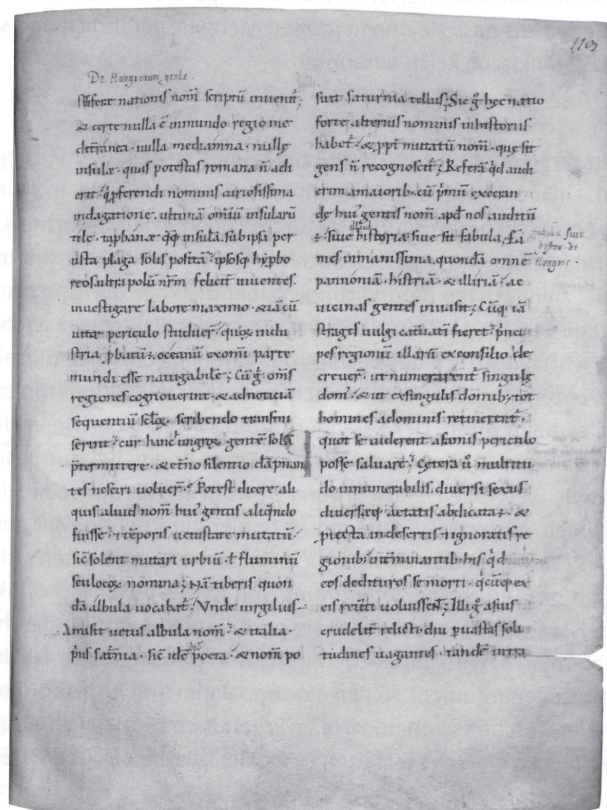 1103
De Hungrorum gente.
fere nationis nom̄ scriptū inuenit̄;
& certe nulla ē inmundo regio me
diterranea · nulla mediamna · nullę
insulę · quis potestas romana n̄ adi
erit ꝓferendi nominis curiosissima
indagatione · ultimā om̄iū insularū
tile · taphanæ q̄q; insulā · sub ipsa per
usta plaga solis positā · ipsosq; hypbo
reos ultra polū nr̄m felicit̄ uiuentes ·
inuestigare labore maximo · & iā cū
uitæ periculo studuer̄ · quoꝝ indu
stria ꝓbatū ÷ oceanū ex om̄i parte
mundi esse nauigabilē; Cū g̊ om̄s
regiones cognouerint · & ad noticiā
sequentiū sclōꝝ scribendo transmi
serint · cur hanc ungroꝝ gentē solā
p̄termittere · & et̄no silentio dāpnan
tes nesciri uoluer̄ · Potest dicere ali
quis aliud nom̄ hui' gentis aliq̄ndo
fuisse · & tēporis uetustate mutatū ·
sic̄ solent mutari urbiū · ł fluminū
seu locoꝝ nomina; Nā tiberis quon
dā albula uocabat̄ · Vnde uirgilius
Amisit uetus albula nom̄ · & italia ·
p̄us sat̄nia · sic̄ idē poeta · & nom̄ po
suit saturnia tellus; Sic g̊ hęc natio
forte alterius nominis in historiis
habet̄ · & ꝓpt̄ mutatū nom̄ · que sit
gens n̄ recognoscit̄; Referā q̄d audi
erim a maiorib; cū p̄mū execran
dę hui' gentis nom̄ apd̄ nos auditū
÷ · siue historia siue sit fabula, Fa
mes inmanissima quondā omnē
pannoniā · histriā · & illiriā · ac
uicinas gentes inuasit; Cūq; iā
strages uulgi cateruatī fieret · p̄nci
pes regionū illarū ex consilio de
creuer̄ · ut numerarent̄ singulę
dom' · & ut ex singulis domib; tot
homines a dominis retinerent̄ ·
quot se uiderent a famis periculo
posse saluare · Cętera u̇ multitu
do innumerabilis diuersi sexus
diuersęq; aetatis abdicata ÷ · &
p̄iecta in desertis & ignoratis re
gionib; int̄minantib; his q̄d
eos dedituros se morti · q̄cūq; ex
eis reuti uoluissent; Illi g̊ a suis
crudelit̄ relicti · diu ꝑ uastas soli
tudines uagantes · tandē intra